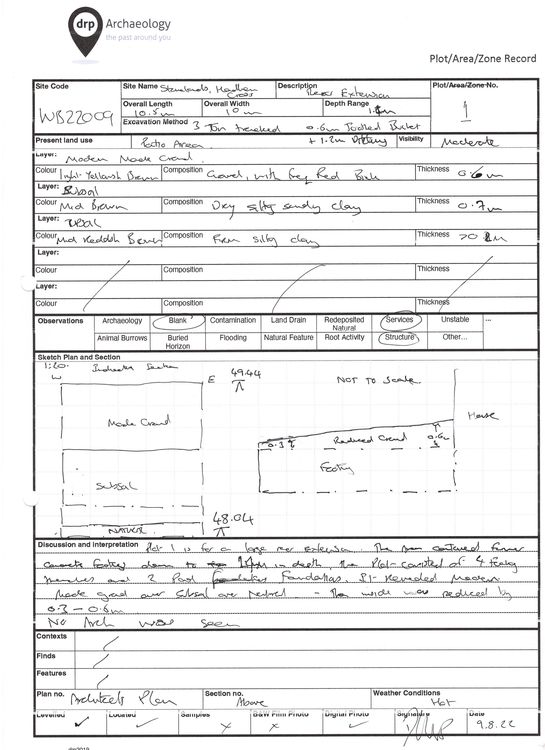 drp Archaeology
the past around you
Plot/Area/Zone Record
Site Code
WB22009
Site Name
Cross
Description
Extension
Plot/Area/Zone No.
1
Overall Length
10.5m
Overall Width
10m
Depth Range
Excavation Method 3 Ton tracked 0.6m Toothed Bucket
Present land use Patio Area + 1.2m Ditching Visibility Moderate
Layer: Modern Made Ground
Colour Light Yellowish Brown Composition Gravel, with freq Red Brick Thickness 0.6m
Layer: Subsoil
Colour Mid Brown Composition Dry silty sandy clay Thickness 0.7m
Layer:
Colour Mid Reddish Brown Composition Firm silty clay Thickness
Layer:
Colour Composition Thickness
Layer:
Colour Composition Thickness
Observations Archaeology Blank Contamination Land Drain Redeposited Natural Services Unstable ...
Animal Burrows Buried Horizon Flooding Natural Feature Root Activity Structure Other...
Sketch Plan and Section
1:20 Indicative Section
W E 49.44
NOT TO Scale
House
Made Ground
0.3 Reduced Ground 0.6
Footing
Subsoil
48.04
Natural
Discussion and Interpretation Plot 1 is for a large rear extension. The contained former
concrete footings down to in depth the Plot consisted of 4 Footing
trenches and 2 Pad Foundations. Revealed Modern
Made ground over Subsoil over Natural - The inside was reduced by
0.3 - 0.6m
No Arch was seen
Contexts
Finds
Features
Plan no. Architects Plan Section no. Above Weather Conditions Hot
Levelled Located Samples B&W Film Photo Digital Photo Signature Date 9.8.22
drp2019